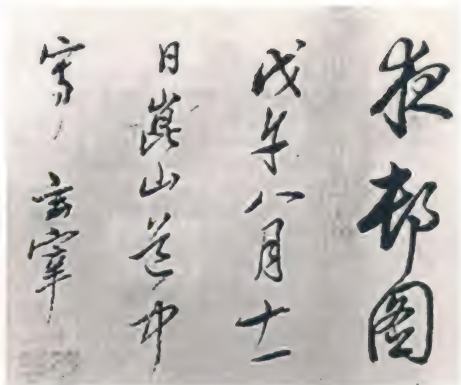 夜邨图
戊午八月十一
日崑山道中
寫 玄宰